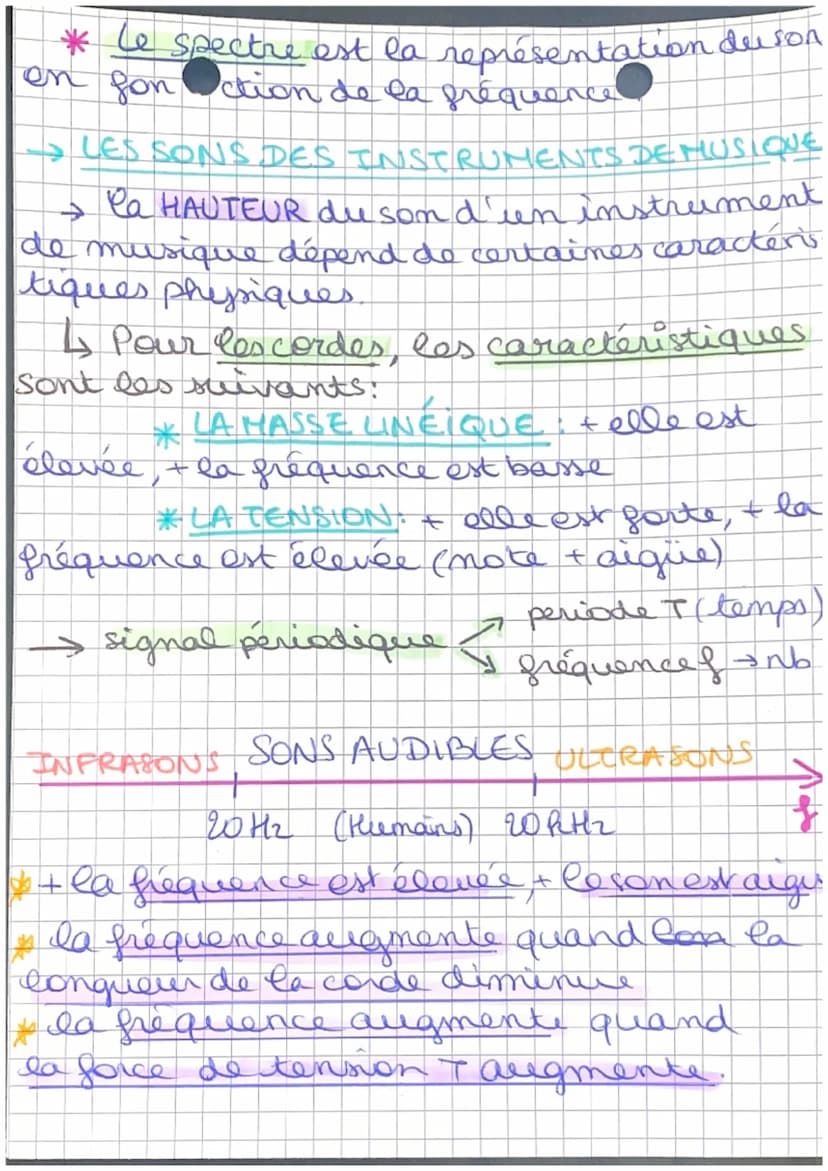 * Le spectre est la représentation du son
en fonction de la fréquence
→ LES SONS DES INSTRUMENTS DE MUSIQUE
→ la HAUTEUR du son d'un instrument
de musique dépend de certaines caractéris
tiques physiques.
↳ Pour les cordes, les caractéristiques
sont les suivants :
* LA MASSE LINÉIQUE : + elle est
élevée, + la fréquence est basse
* LA TENSION : + elle est forte, + la
fréquence est élevée (note + aigüe)
→ signal périodique ↗ periode T (temps)
↘ fréquence f → nb
INFRASONS SONS AUDIBLES ULTRASONS
20 Hz (Humains) 20 kHz f
* + la fréquence est élevée, + le son est aigu
* la fréquence augmente quand la
longueur de la corde diminue
* la fréquence augmente quand
la force de tension T augmente.